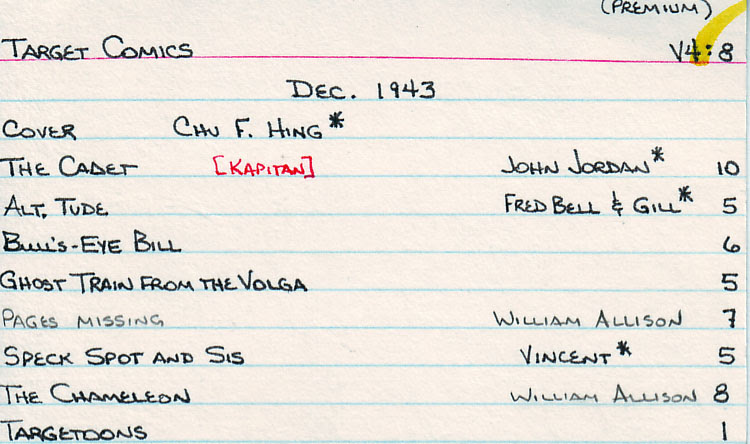 (PREMIUM)
TARGET COMICS V4:8
DEC. 1943
COVER CHU F. HING*
THE CADET [KAPITAN] JOHN JORDAN* 10
ALT. TUDE FRED BELL & GILL* 5
BULL'S-EYE BILL 6
GHOST TRAIN FROM THE VOLGA 5
PAGES MISSING WILLIAM ALLISON 7
SPECK SPOT AND SIS VINCENT* 5
THE CHAMELEON WILLIAM ALLISON 8
TARGETOONS 1